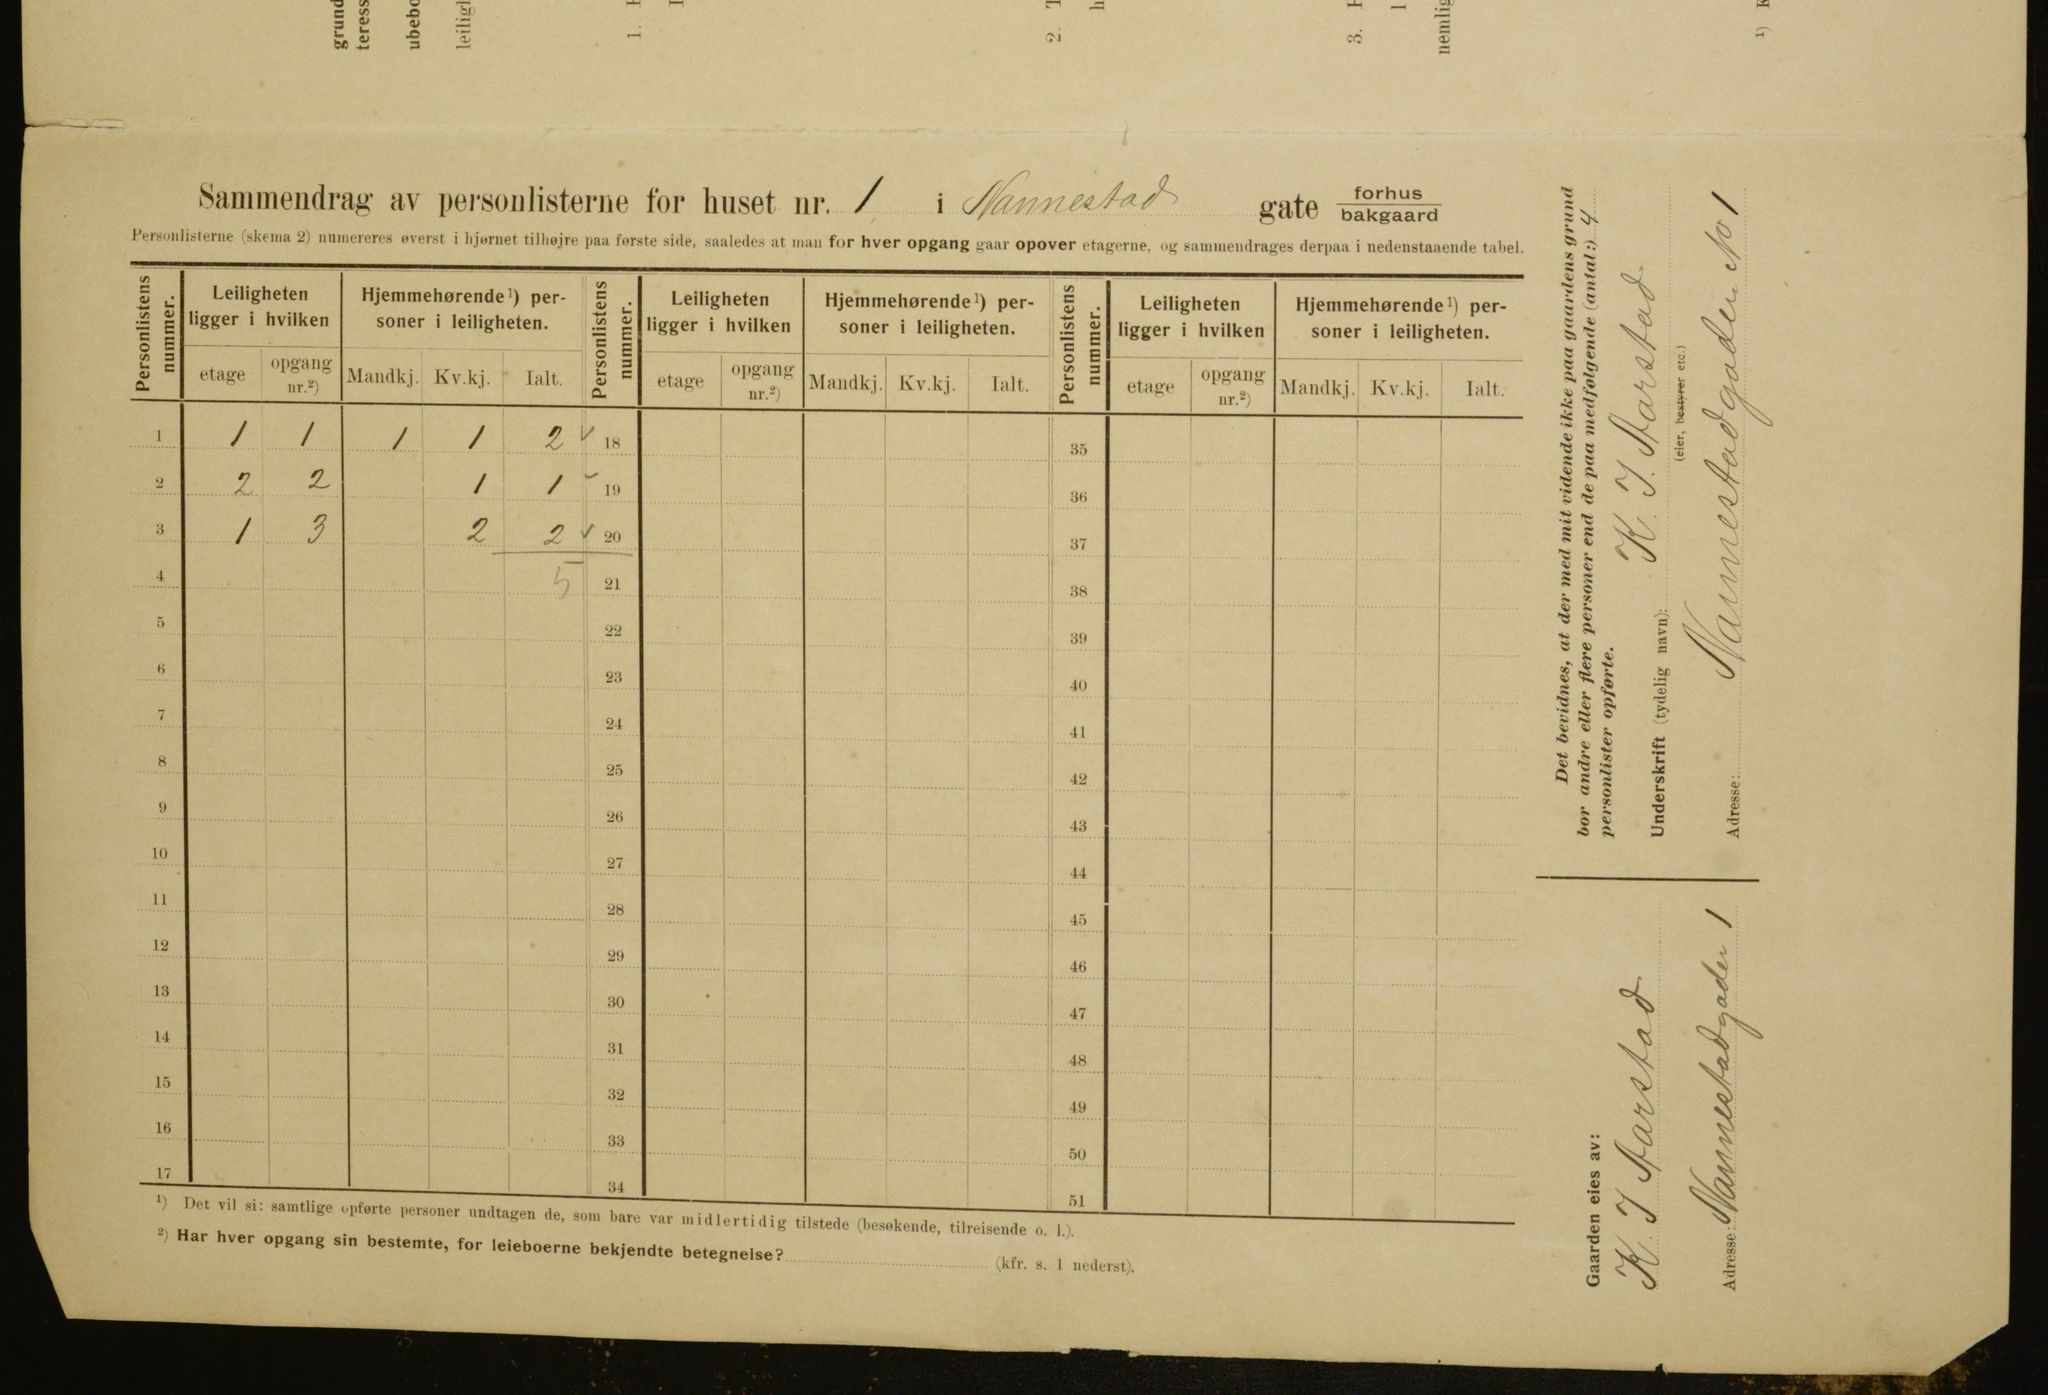 grund
teress
ubebo
leiligh
1.
2. T
h
3.
nemlig
¹)
Sammendrag av personlisterne for huset nr. 1 i Nannestad gate forhus
bakgaard
Personlisterne (skema 2) numereres øverst i hjørnet tilhøjre paa første side, saaledes at man for hver opgang gaar opover etagerne, og sammendrages derpaa i nedenstaaende tabel.
Personlistens nummer. Leiligheten ligger i hvilken Hjemmehørende¹) personer i leiligheten. Personlistens nummer. Leiligheten ligger i hvilken Hjemmehørende¹) personer i leiligheten. Personlistens nummer. Leiligheten ligger i hvilken Hjemmehørende¹) personer i leiligheten.
etage opgang nr.²) Mandkj. Kv.kj. Ialt. etage opgang nr.²) Mandkj. Kv.kj. Ialt. etage opgang nr.²) Mandkj. Kv.kj. Ialt.
1 1 1 1 1 2 ✓ 18 35
2 2 2 1 1 19 36
3 1 3 2 2 ✓ 20 37
4 5 21 38
5 22 39
6 23 40
7 24 41
8 25 42
9 26 43
10 27 44
11 28 45
12 29 46
13 30 47
14 31 48
15 32 49
16 33 50
17 34 51
¹) Det vil si: samtlige opførte personer undtagen de, som bare var midlertidig tilstede (besøkende, tilreisende o. l.).
²) Har hver opgang sin bestemte, for leieboerne bekjendte betegnelse? (kfr. s. 1 nederst).
Det bevidnes, at der med mit vidende ikke paa gaardens grund
bor andre eller flere personer end de paa medfølgende (antal:) 4
personlister opførte.
Underskrift (tydelig navn): K. J. Aarstad
(eier, bestyrer etc.)
Adresse: Nannestadgaden No 1
Gaarden eies av:
K. J Aarstad
Adresse: Nannestadgaden 1